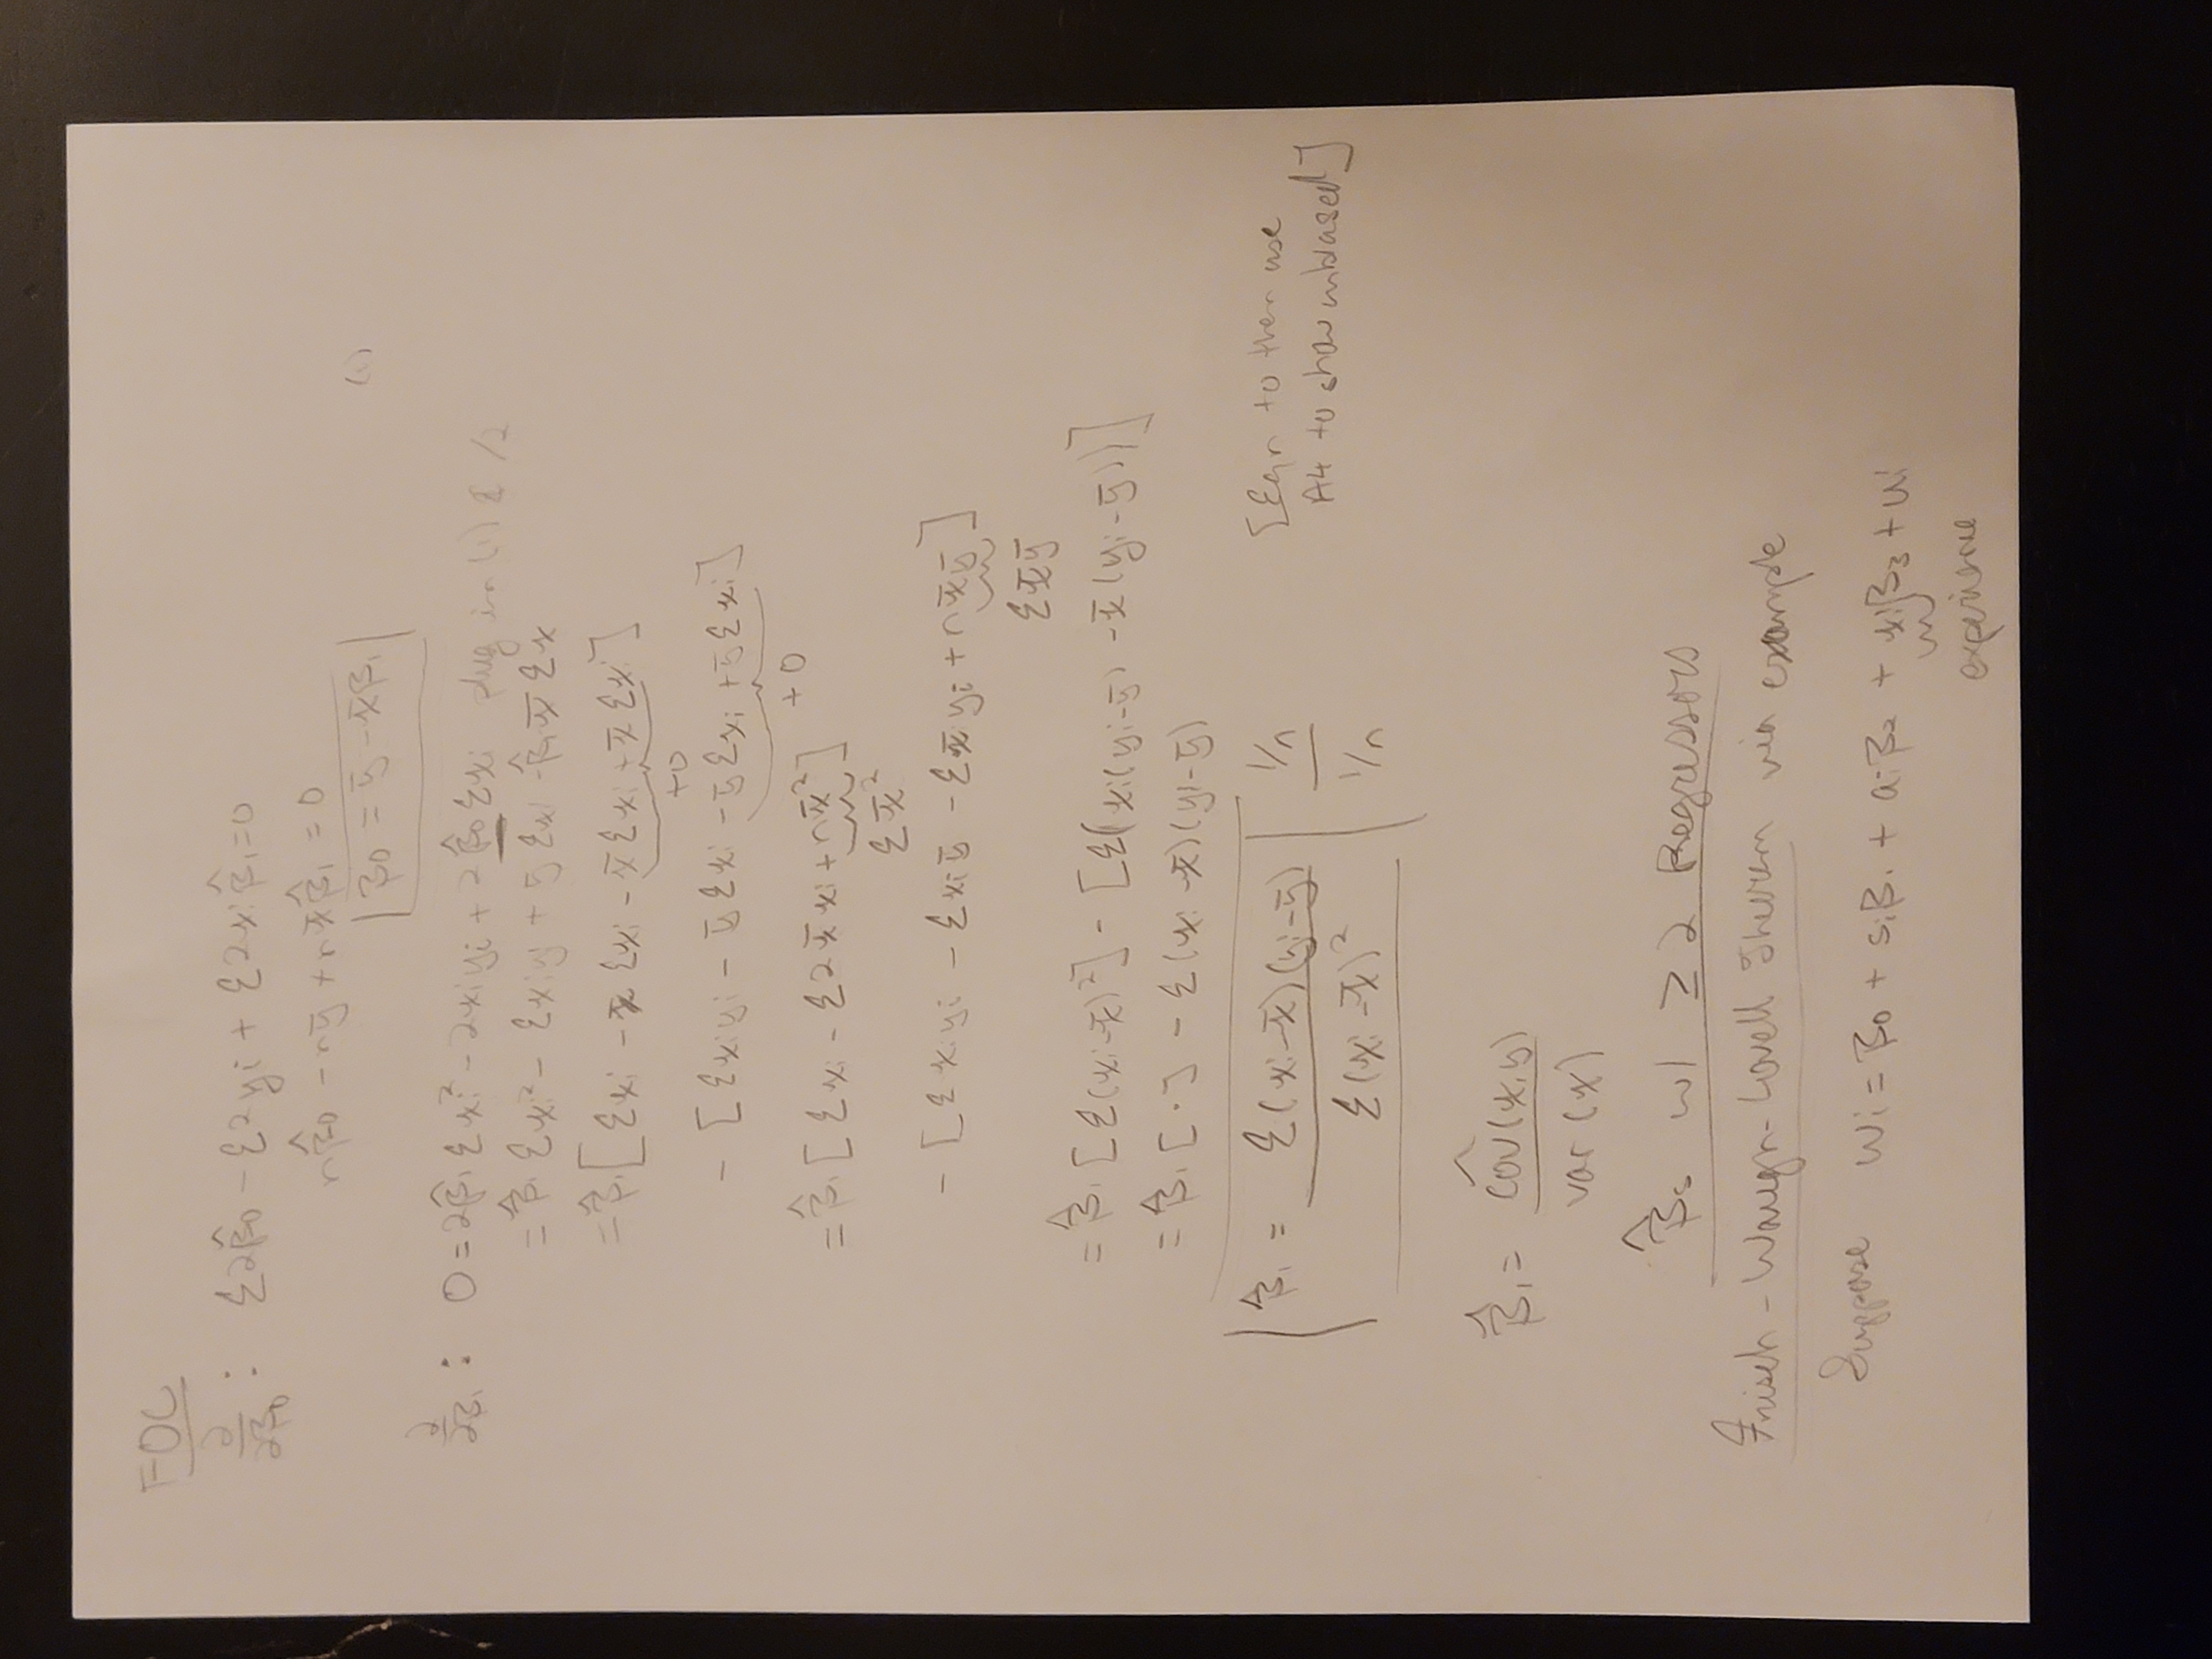 FOC
∂/∂β0 : Σ2β̂0 - Σ2yi + Σ2xiβ̂1 = 0
nβ̂0 - nȳ + nx̄β̂1 = 0
β0 = ȳ - x̄β1 (1)
∂/∂β1 : 0 = 2β̂1Σxi² - 2xiyi + 2β̂0Σxi plug in (1) & /2
= β̂1Σxi² - Σxiy + ȳΣx - β̂1x̄Σx
= β̂1[Σxi - x̄Σxi - x̄Σxi + x̄Σxi]
+0
- [Σxiyi - ȳΣxi - ȳΣxi + ȳΣxi]
+0
= β̂1[Σxi - Σ2x̄xi + nx̄²]
Σx̄²
- [Σxiyi - Σxiȳ - Σx̄yi + nx̄ȳ]
Σx̄ȳ
= β̂1[Σ(xi-x̄)²] - [Σ(xi(yi-ȳ) - x̄(yi-ȳ))]
= β̂1[·] - Σ(xi-x̄)(yi-ȳ)
β̂1 = Σ(xi-x̄)(yi-ȳ) / Σ(xi-x̄)² 1/n / 1/n
[Eqn to then use
A4 to show unbiased]
β̂1 = côv(x,y) / var(x)
β̂s w/ ≥ 2 Regressors
Frisch-Waugh-Lovell Theorem via example
Suppose wi = β0 + siβ1 + aiβ2 + xiβ3 + ui
experience